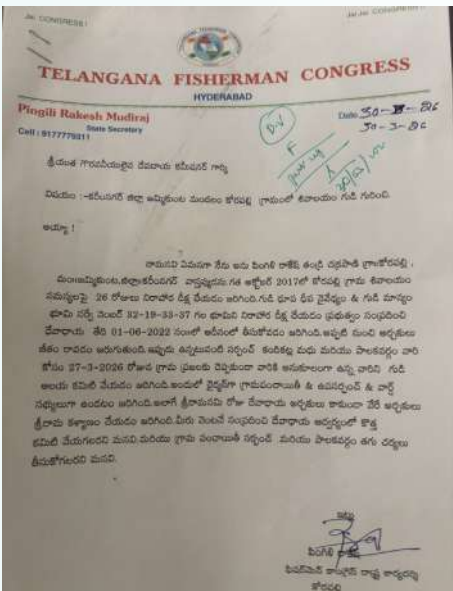 Jai CONGRESS !
Jai Jai CONGRESS !
TELANGANA FISHERMAN CONGRESS
HYDERABAD
Pingili Rakesh Mudiraj
State Secretary
Cell : 9177779311
Date 30-3-26
30-3-26
D.V
శ్రీయుత గౌరవనీయులైన దేవదాయ కమీషనర్ గార్కి
విషయం :-కరీంనగర్ జిల్లా జమ్మికుంట మండలం కోరపల్లి గ్రామంలో శివాలయం గుడి గురించి.
అయ్యా !
రామనవి ఏమనగా నేను అను పింగిళి రాకేష్ తండ్రి చక్రపాణి గ్రా:కోరపల్లి ,
మం:జమ్మికుంట,జిల్లా:కరీంనగర్ వాస్తవ్యుడను.గత అక్టోబర్ 2017లో కోరపల్లి గ్రామ శివాలయం
సమస్యలపై 26 రోజులు నిరాహార దీక్ష చేయడం జరిగింది.గుడి ధూప దీప నైవేధ్యం & గుడి మాన్యం
భూమి సర్వే నెంబర్ 32-19-33-37 గల భూమిని నిరాహార దీక్ష చేయడం ప్రభుత్వం సంప్రదించి
దేవాదాయ తేది 01-06-2022 నాలో ఆదీనంలో తీసుకోవడం జరిగింది.అప్పటి నుంచి అర్చకులు
జీతం రావడం జరుగుతుంది.ఇప్పుడు ఉన్నటువంటి సర్పంచ్ కందికట్ల మధు మరియు పాలకవర్గం వారి
కోసం 27-3-2026 రోజున గ్రామ ప్రజలకు చెప్పకుండా వారికి అనుకూలంగా ఉన్న వారిని గుడి
ఆలయ కమిటీ చేయడం జరిగింది.అందులో చైర్మన్‌గా గ్రామపంచాయితీ & ఉపసర్పంచ్ & వార్డ్
సభ్యులుగా ఉండటం జరిగింది.అలాగే శ్రీరామనవి రోజు దేవాదాయ అర్చకులు కాకుండా వేరే అర్చకులు
శ్రీరామ కళ్యాణం చేయడం జరిగింది.మీరు వెంటనే సంప్రదించి దేవాదాయ ఆధ్వర్యంలో కొత్త
కమిటీ చేయగలరని మనవి.మరియు గ్రామ పంచాయితీ సర్పంచ్ మరియు పాలకవర్గం తగు చర్యలు
తీసుకోగలరని మనవి.
ఇట్లు
పింగిళి రాకేష్
ఫిషర్‌మెన్ కాంగ్రెస్ రాష్ట్ర కార్యదర్శి
కోరపల్లి